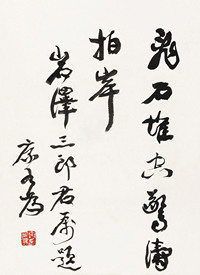 乱石堆空惊涛
拍岸
岩澤三郎君属題
康有為